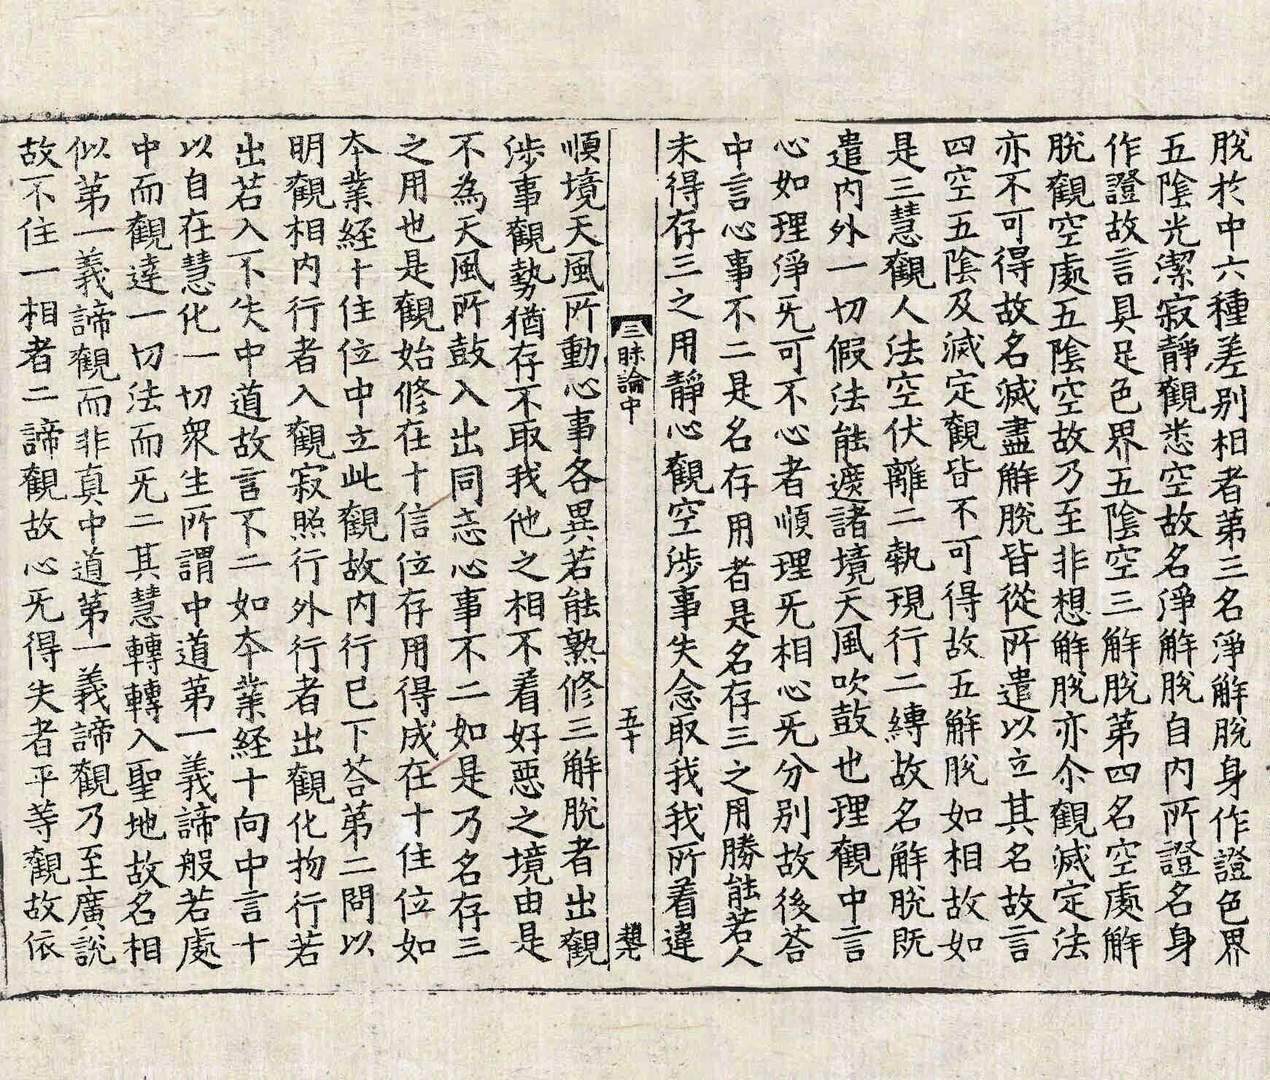 脫於中六種差别相者第三名淨解脫身作證色界
五陰光潔寂靜觀悉空故名淨解脫自内所證名身
作證故言具足色界五陰空三解脫第四名空處解
脫觀空處五陰空故乃至非想解脫亦尒觀滅定法
亦不可得故名滅盡解脫皆從所遣以立其名故言
四空五陰及滅定觀皆不可得故五解脫如相故如
是三慧觀人法空伏離二執現行二縛故名解脫既
遣内外一切假法能遮諸境天風吹鼓也理觀中言
心如理淨旡可不心者順理旡相心旡分别故後荅
中言心事不二是名存用者是名存三之用勝能若人
未得存三之用靜心觀空涉事失念取我我所着違
三昧論中
五十
趙光
順境天風所動心事各異若能熟修三解脫者出觀
涉事觀勢猶存不取我他之相不着好惡之境由是
不為天風所鼓入出同忘心事不二如是乃名存三
之用也是觀始修在十信位存用得成在十住位如
夲業経十住位中立此觀故内行已下荅第二問以
明觀相内行者入觀寂照行外行者出觀化物行若
出若入不失中道故言不二如夲業経十向中言十
以自在慧化一切衆生所謂中道第一義諦般若處
中而觀達一切法而旡二其慧轉轉入聖地故名相
似第一義諦觀而非真中道第一義諦觀乃至廣說
故不住一相者二諦觀故心旡得失者平等觀故依